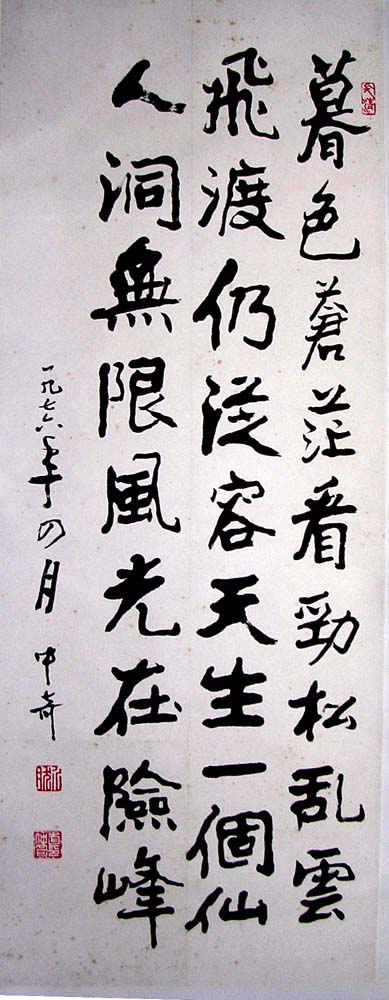 暮色蒼茫看勁松乱雲
飛渡仍從容天生一個仙
人洞無限風光在險峰
一九七六年四月 中奇